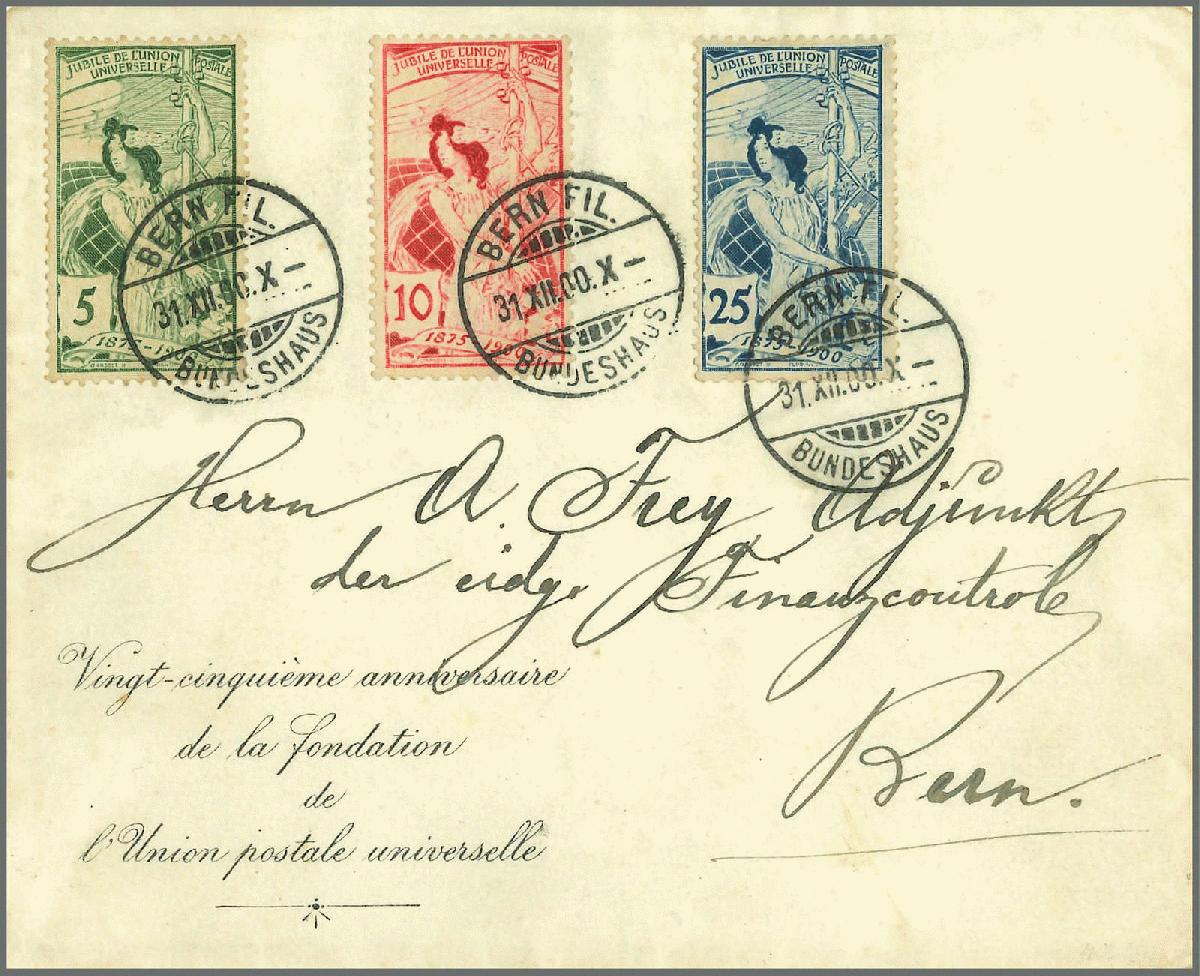 JUBILÉ DE L'UNION POSTALE
UNIVERSELLE
5
JUBILÉ DE L'UNION POSTALE
UNIVERSELLE
10
1875 1900
JUBILÉ DE L'UNION POSTALE
UNIVERSELLE
25
1875 1900
BERN FIL.
31.XII.00.X–
BUNDESHAUS
BERN FIL.
31.XII.00.X–
BUNDESHAUS
BERN FIL.
31.XII.00.X–
BUNDESHAUS
Herrn A. Frey Adjunkt
der eidg. Finanzcontrole
Bern.
Vingt-cinquième anniversaire
de la fondation
de
l'Union postale universelle